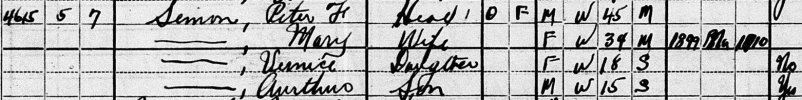 4615 5 7 Semon, Peter F Head 1 O F M W 45 M
——, Mary Wife F W 34 M 1899 Na 1910
——, Vernice Daughter F W 18 S No
——, Aurthur Son M W 15 S Yes